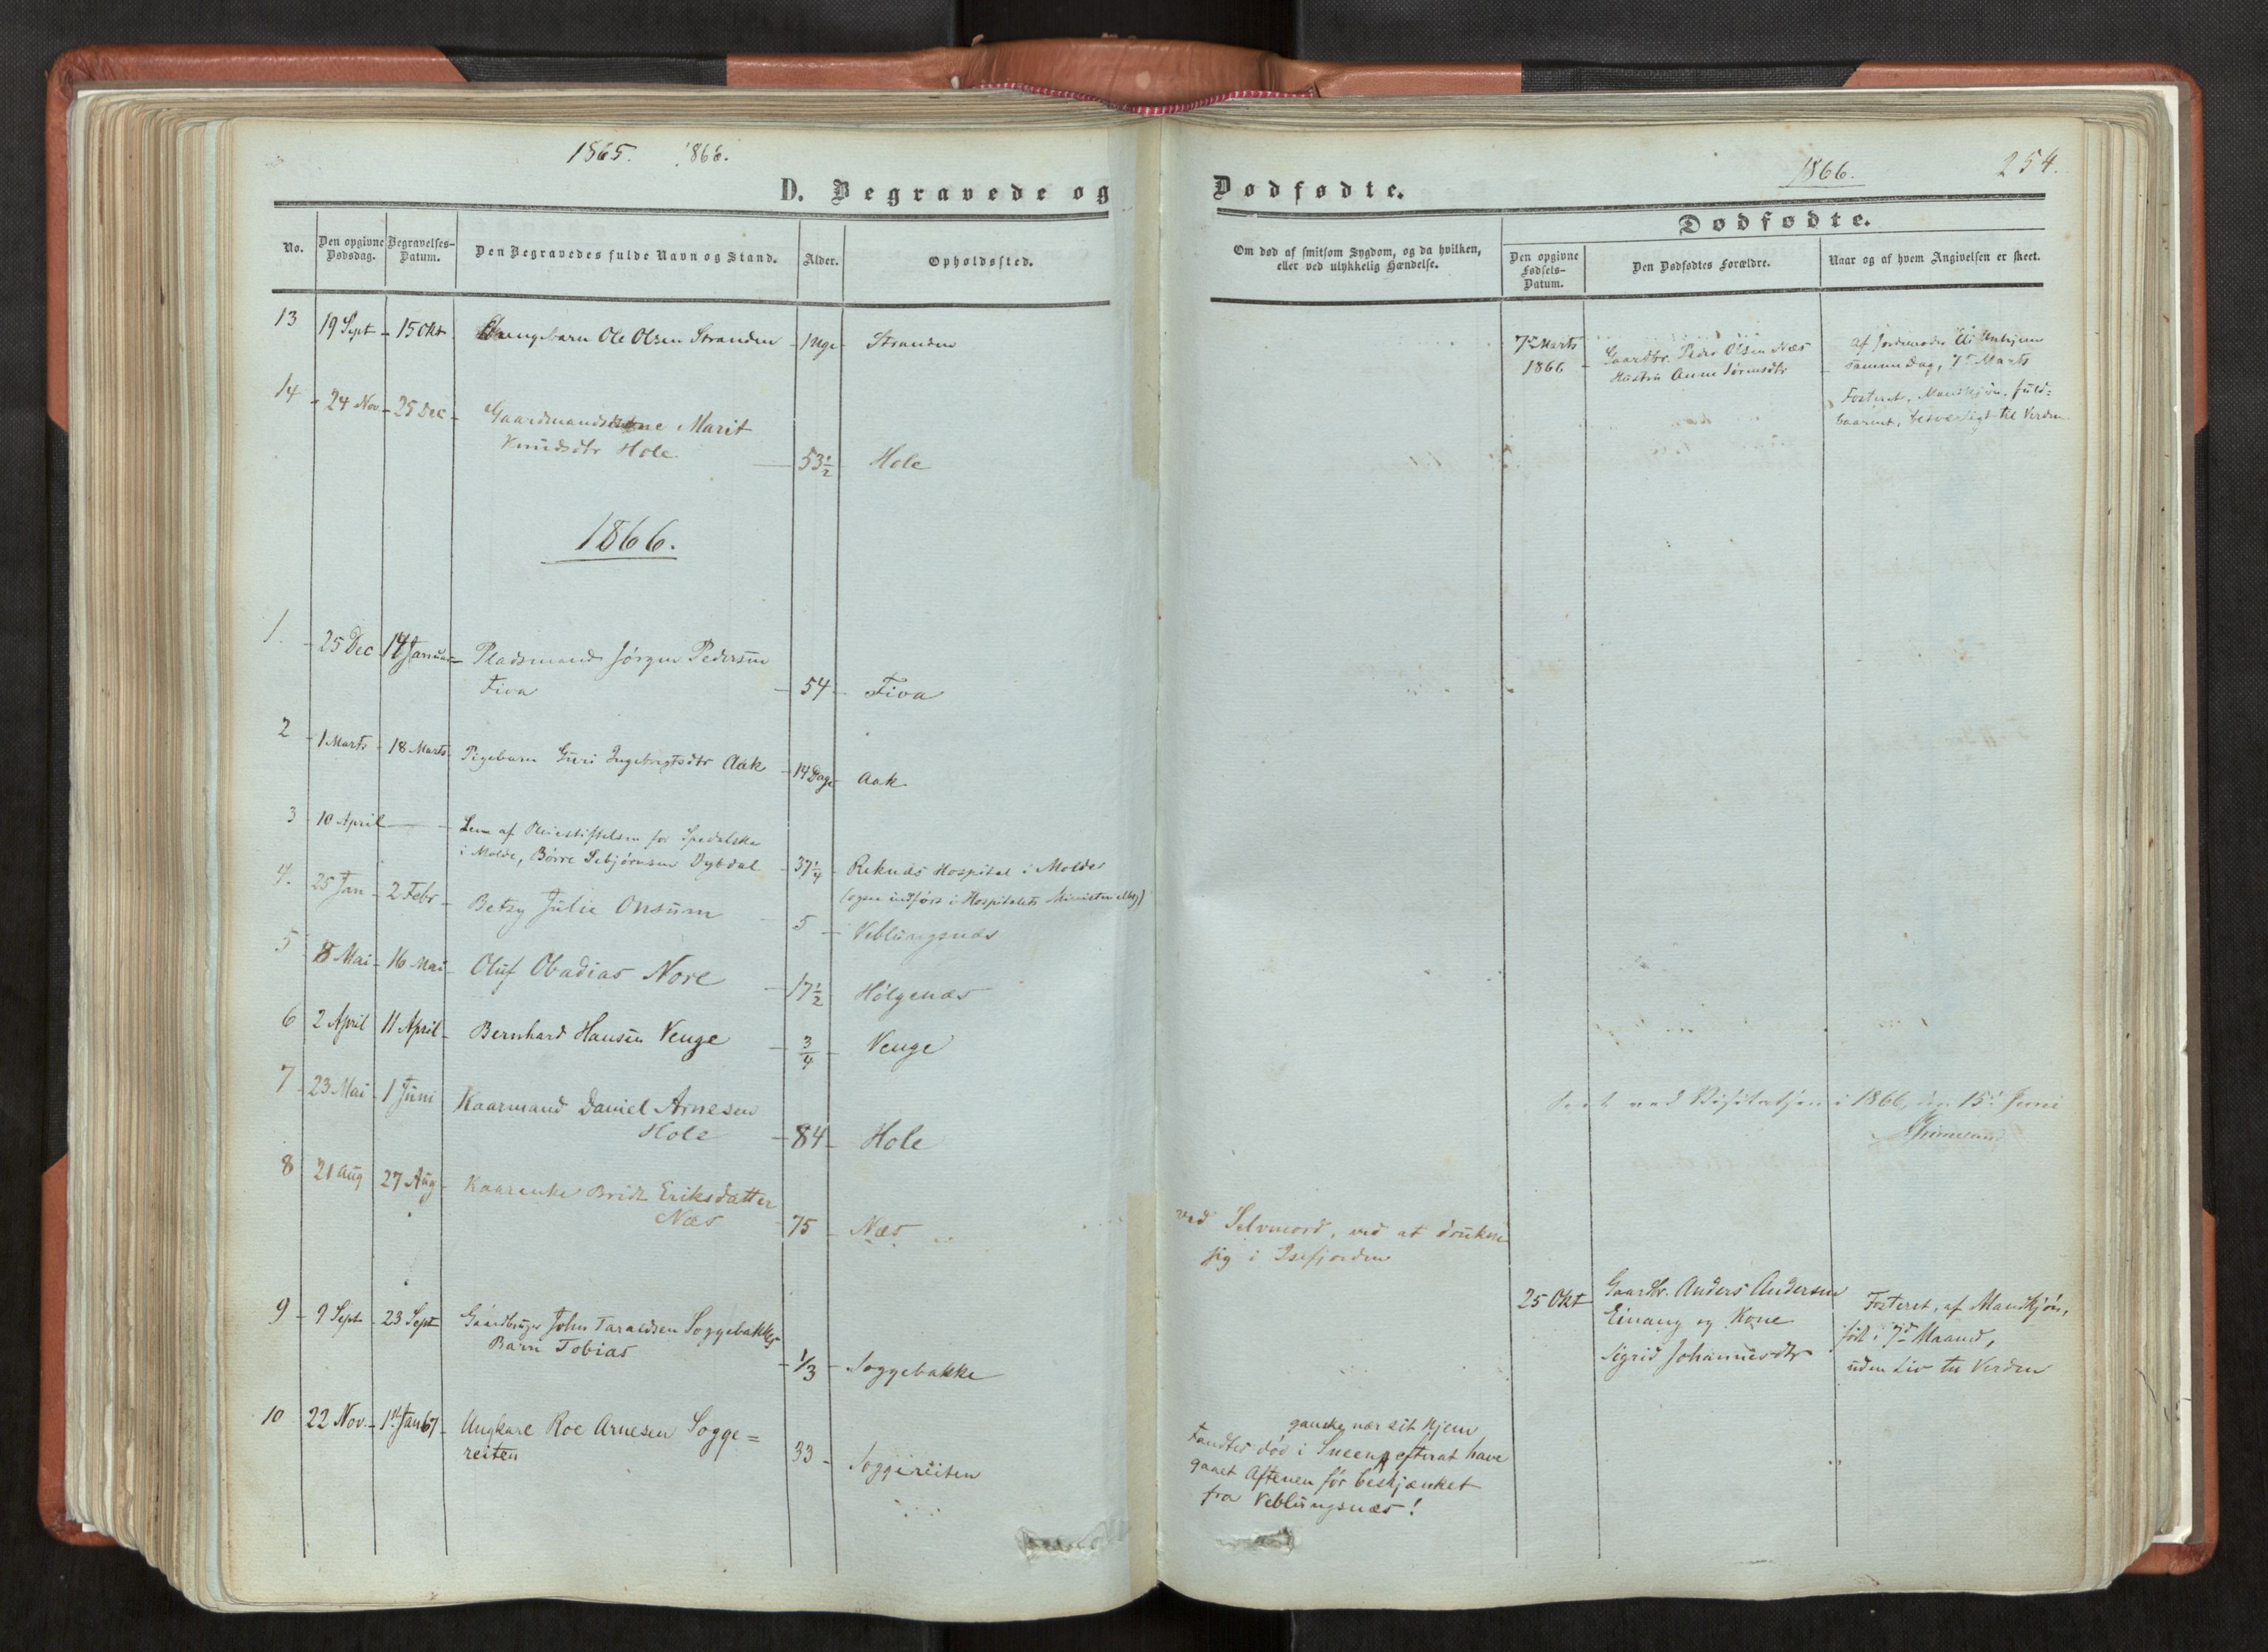 1865. 1866.
D. Begravede og
No.
Den opgivne Dødsdag.
Begravelses-Datum.
Den Begravedes fulde Navn og Stand.
Alder.
Opholdssted.
13 19 Sept 15 Okt Drengebarn Ole Olsen Stranden 1 Uge Stranden
14 24 Nov 25 Dec Gaardmandskone Marit
Knudsdtr Hole 53½ Hole
1866.
1. 25 Dec 14 Januar Pladsmand Jørgen Pedersen
Fiva 54 Fiva
2 1 Marts 18 Marts Pigebarn Guri Ingebrigtsdtr Aak 14 Dage Aak
3 10 April Lem af Pleiestiftelsen for Spedalske
i Molde, Børre Sebjørnsen Dybdal 37¼ Reknæs Hospital i Molde
(ogsaa indført i Hospitalets Ministerialbog)
4. 25 Jan 2 Febr Betzy Julie Onsum 5 Veblungsnæs
5 8 Mai 16 Mai Oluf Obadias Nore 17½ Holgenæs
6 2 April 11 April Bernhard Hansen Venge ¾ Venge
7 23 Mai 1 Juni Kaarmand Daniel Arnesen
Hole 84 Hole
8 21 Aug 27 Aug Kaarenke Bridt Eriksdatter
Næs 75 Næs
9 9 Sept 23 Sept Gaardbruger John Taraldsen Soggebakkes
Barn Tobias 1/3 Soggebakke
10 22 Nov. 1st Jan 67 Ungkarl Roe Arnesen Sogge=
reiten 33 Soggereiten
1866. 254.
Dødfødte.
Dødfødte.
Om død af smitsom Sygdom, og da hvilken,
eller ved ulykkelig Hændelse.
Den opgivne Fødsels-Datum.
Den Dødfødtes Forældre.
Naar og af hvem Angivelsen er skeet.
7de Marts
1866
Gaardbr. Peder Olsen Næs
Hustru Anne Sørensdtr
af Jordemoder Eli Unhjem
samme Dag, 7de Marts
Fosteret, Mandkjøn, fuld=
baarent,
til Verden
ved Visitatsen i 1866, den 15de Juni
ved Selvmord, ved at drukne
sig i Isefjorden
25 Okt
Gaardbr. Anders Andersen
Einang og Kone
Sigrid Johannesdtr
Fosteret, af Mandkjøn,
født i 7de Maaned,
uden Liv til Verden
ganske nær sit Hjem
Fandtes død i Sneen, efterat have
gaaet Aftenen før beskjænket
fra Veblungsnæs!